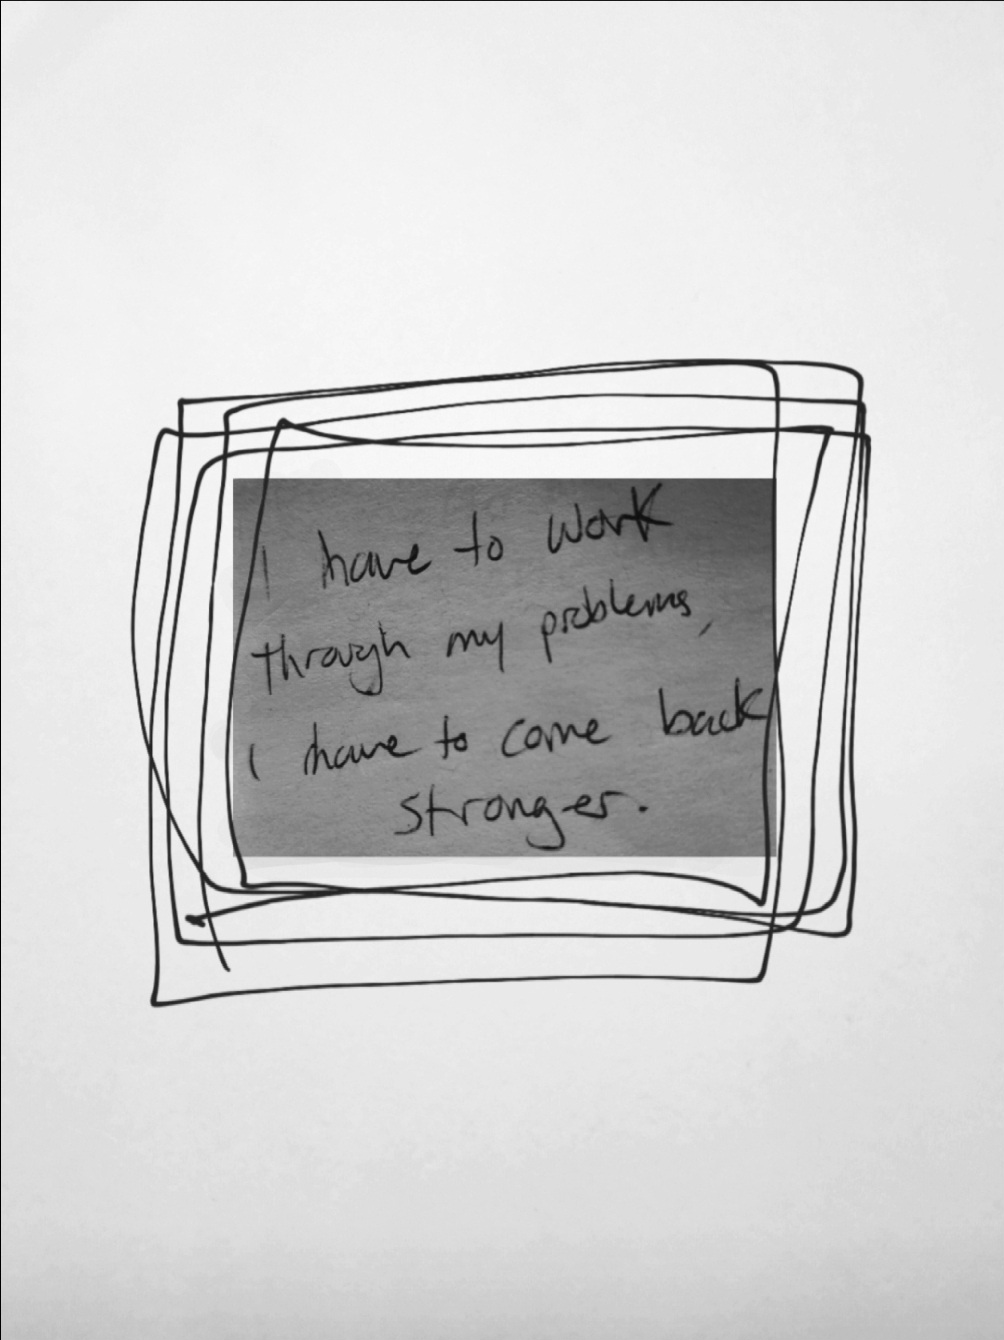 I have to work
through my problems,
I have to come back
stronger.